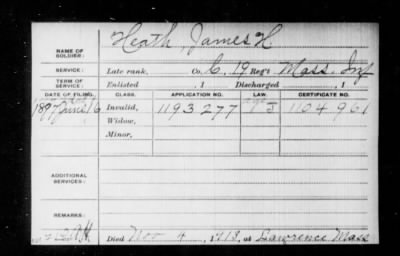 Heath, James H
NAME OF SOLDIER:
SERVICE: Late rank, Co. C, 19 Reg't Mass. Inf
TERM OF SERVICE: Enlisted , 1 Discharged , 1
DATE OF FILING. CLASS. APPLICATION NO. LAW. CERTIFICATE NO.
1897 June 16 Invalid, 1193277 1104961
Widow,
Minor,
ADDITIONAL SERVICES:
REMARKS:
Died Nov 4, 1913, at Lawrence Mass